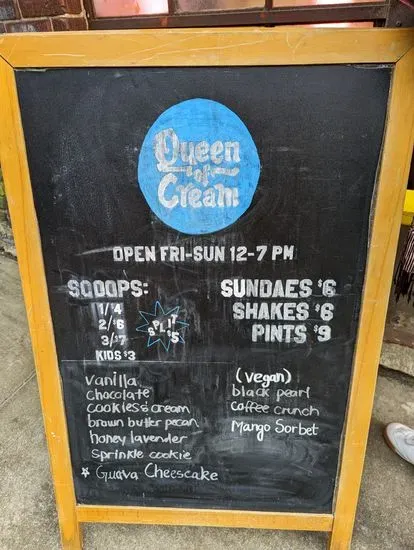 Queen
of
Cream
OPEN FRI-SUN 12-7 PM
SCOOPS:
1/$4
2/$6
3/$7
KIDS $3
SPLIT
$5
SUNDAES $6
SHAKES $6
PINTS $9
vanilla
chocolate
cookies & cream
brown butter pecan
honey lavender
sprinkle cookie
☆ Guava Cheescake
(vegan)
black pearl
coffee crunch
Mango Sorbet